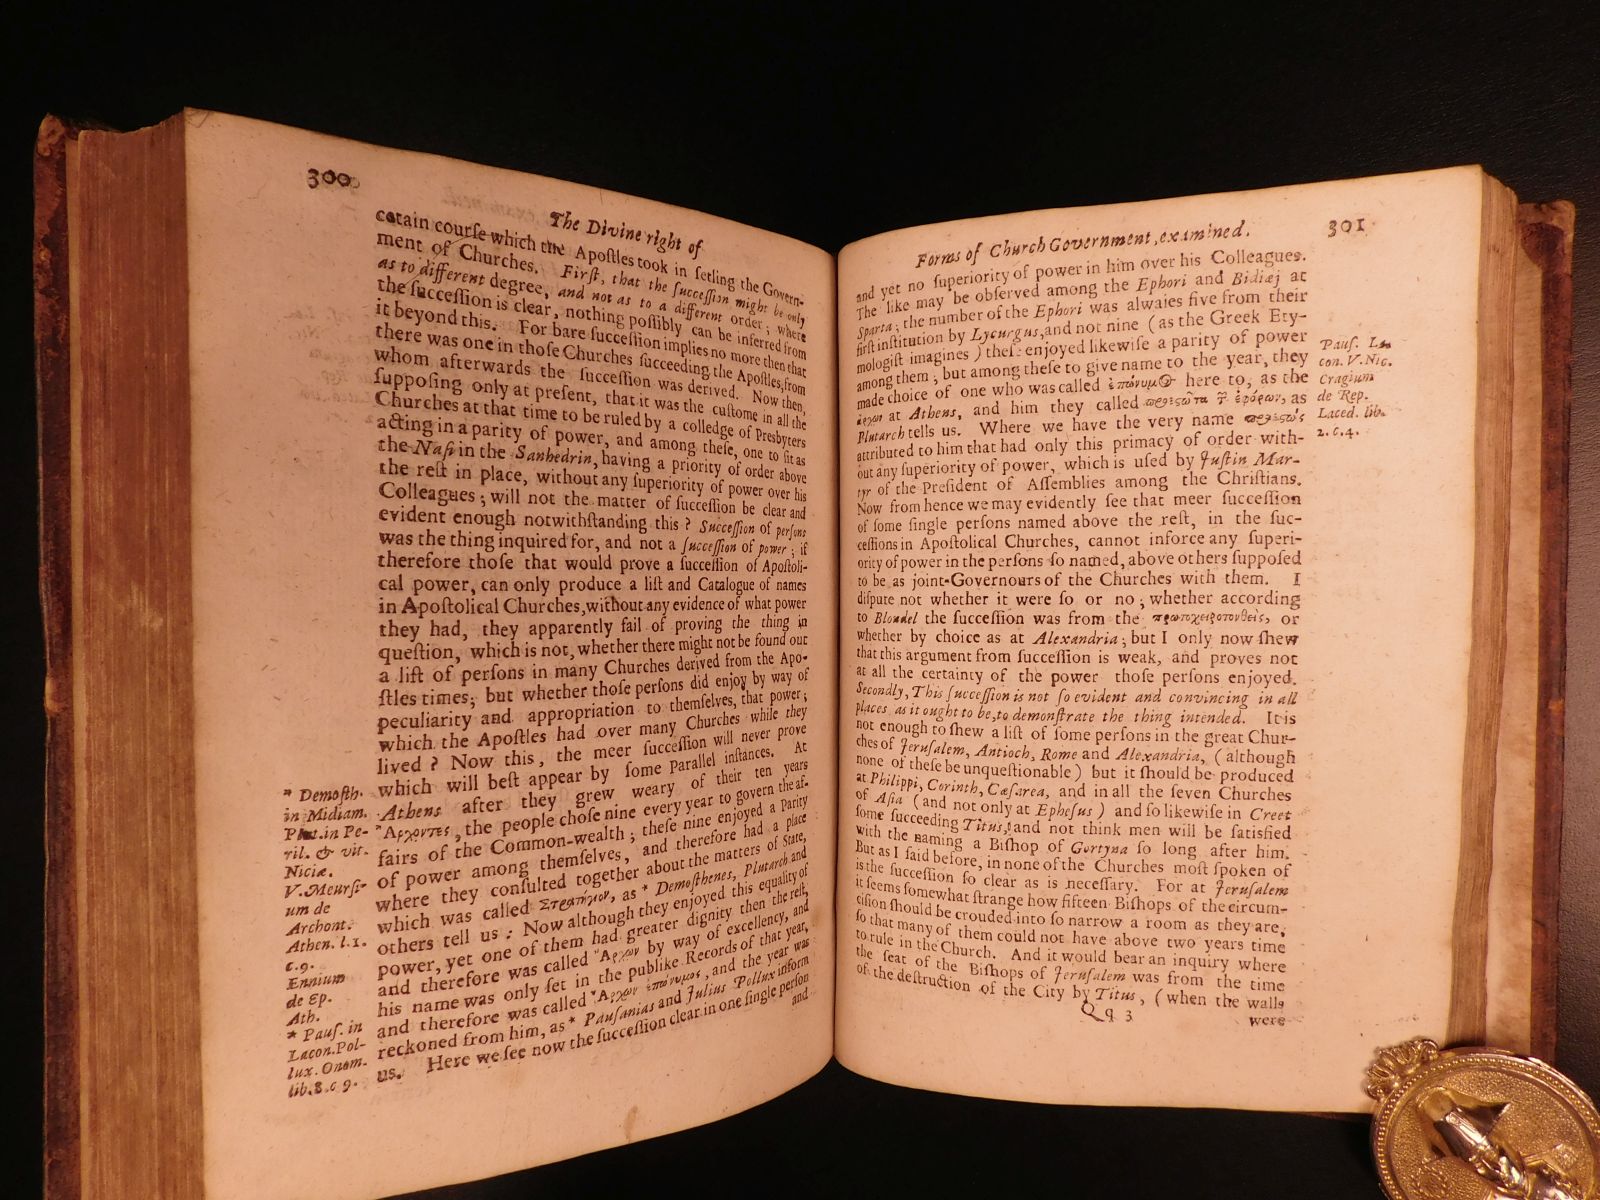 300
The Divine right of
cetain courſe which the Apoſtles took in ſetling the Govern-
ment of Churches. Firſt, that the ſucceſſion might be only
as to different degree, and not as to a different order; where
the ſucceſſion is clear, nothing poſſibly can be inferred from
it beyond this. For bare ſucceſſion implies no more then that
there was one in thoſe Churches ſucceeding the Apoſtles, from
whom afterwards the ſucceſſion was derived. Now then,
ſuppoſing only at preſent, that it was the cuſtome in all the
Churches at that time to be ruled by a colledge of Presbyters
acting in a parity of power, and among theſe, one to ſit as
the Naſi in the Sanhedrin, having a priority of order above
the reſt in place, without any ſuperiority of power over his
Colleagues; will not the matter of ſucceſſion be clear and
evident enough notwithſtanding this? Succeſſion of perſons
was the thing inquired for, and not a ſucceſſion of power; if
therefore thoſe that would prove a ſucceſſion of Apoſtoli-
cal power, can only produce a liſt and Catalogue of names
in Apoſtolical Churches, without any evidence of what power
they had, they apparently fail of proving the thing in
queſtion, which is not, whether there might not be found out
a liſt of perſons in many Churches derived from the Apo-
ſtles times; but whether thoſe perſons did enjoy by way of
peculiarity and appropriation to themſelves, that power;
which the Apoſtles had over many Churches while they
lived? Now this, the meer ſucceſſion will never prove
which will beſt appear by ſome Parallel inſtances. At
Athens after they grew weary of their ten years
*Ἄρχοντες, the people choſe nine every year to govern the af-
fairs of the Common-wealth; theſe nine enjoyed a parity
of power among themſelves, and therefore had a place
where they conſulted together about the matters of State,
which was called as * Demoſthenes, Plutarch and
others tell us: Now although they enjoyed this equality of
power, yet one of them had greater dignity then the reſt,
and therefore was called Ἄρχων by way of excellency, and
his name was only ſet in the publike Records of that year,
and therefore was called Ἄρχων ἐπώνυμος, and the year was
reckoned from him, as * Pauſanias and Julius Pollux inform
us. Here we ſee now the ſucceſſion clear in one ſingle perſon
and
* Demoſth.
in Midiam.
Plut. in Pe-
ril. & vit.
Niciæ.
V. Meurſi-
um de
Archont.
Athen. l. 1.
c. 9.
Ennium
de Ep.
Ath.
* Pauſ. in
Lacon. Pol-
lux. Onom.
lib. 8. c 9.
Forms of Church Government, examined.
301
and yet no ſuperiority of power in him over his Colleagues.
The like may be obſerved among the Ephori and Bidiæj at
Sparta; the number of the Ephori was alwaies five from their
firſt inſtitution by Lycurgus, and not nine (as the Greek Ety-
mologiſt imagines) theſe enjoyed likewiſe a parity of power
among them; but among theſe to give name to the year, they
made choice of one who was called ἐπώνυμος here to, as the
ἄρχων at Athens, and him they called προεςῶτα τ̃ ἐφόρων, as
Plutarch tells us. Where we have the very name προεςὼς
attributed to him that had only this primacy of order with-
out any ſuperiority of power, which is uſed by Juſtin Mar-
tyr of the Preſident of Aſſemblies among the Chriſtians.
Now from hence we may evidently ſee that meer ſucceſſion
of ſome ſingle perſons named above the reſt, in the ſuc-
ceſſions in Apoſtolical Churches, cannot inforce any ſuperi-
ority of power in the perſons ſo named, above others ſuppoſed
to be as joint-Governours of the Churches with them. I
diſpute not whether it were ſo or no; whether according
to Blondel the ſucceſſion was from the or
whether by choice as at Alexandria; but I only now ſhew
that this argument from ſucceſſion is weak, and proves not
at all the certainty of the power thoſe perſons enjoyed.
Secondly, This ſucceſſion is not ſo evident and convincing in all
places as it ought to be, to demonſtrate the thing intended. It is
not enough to ſhew a liſt of ſome perſons in the great Chur-
ches of Jeruſalem, Antioch, Rome and Alexandria, (although
none of theſe be unqueſtionable) but it ſhould be produced
at Philippi, Corinth, Cæſarea, and in all the ſeven Churches
of Aſia (and not only at Epheſus) and ſo likewiſe in Creet
ſome ſucceeding Titus, and not think men will be ſatisfied
with the naming a Biſhop of Gortyna ſo long after him.
But as I ſaid before, in none of the Churches moſt ſpoken of
is the ſucceſſion ſo clear as is neceſſary. For at Jeruſalem
it ſeems ſomewhat ſtrange how fifteen Biſhops of the circum-
ciſion ſhould be crouded into ſo narrow a room as they are,
ſo that many of them could not have above two years time
to rule in the Church. And it would bear an inquiry where
the ſeat of the Biſhops of Jeruſalem was from the time
of the deſtruction of the City by Titus, (when the walls
Qq 3
were
Pauſ. La-
con. V. Nic.
Cragium
de Rep.
Laced. lib.
2. c. 4.